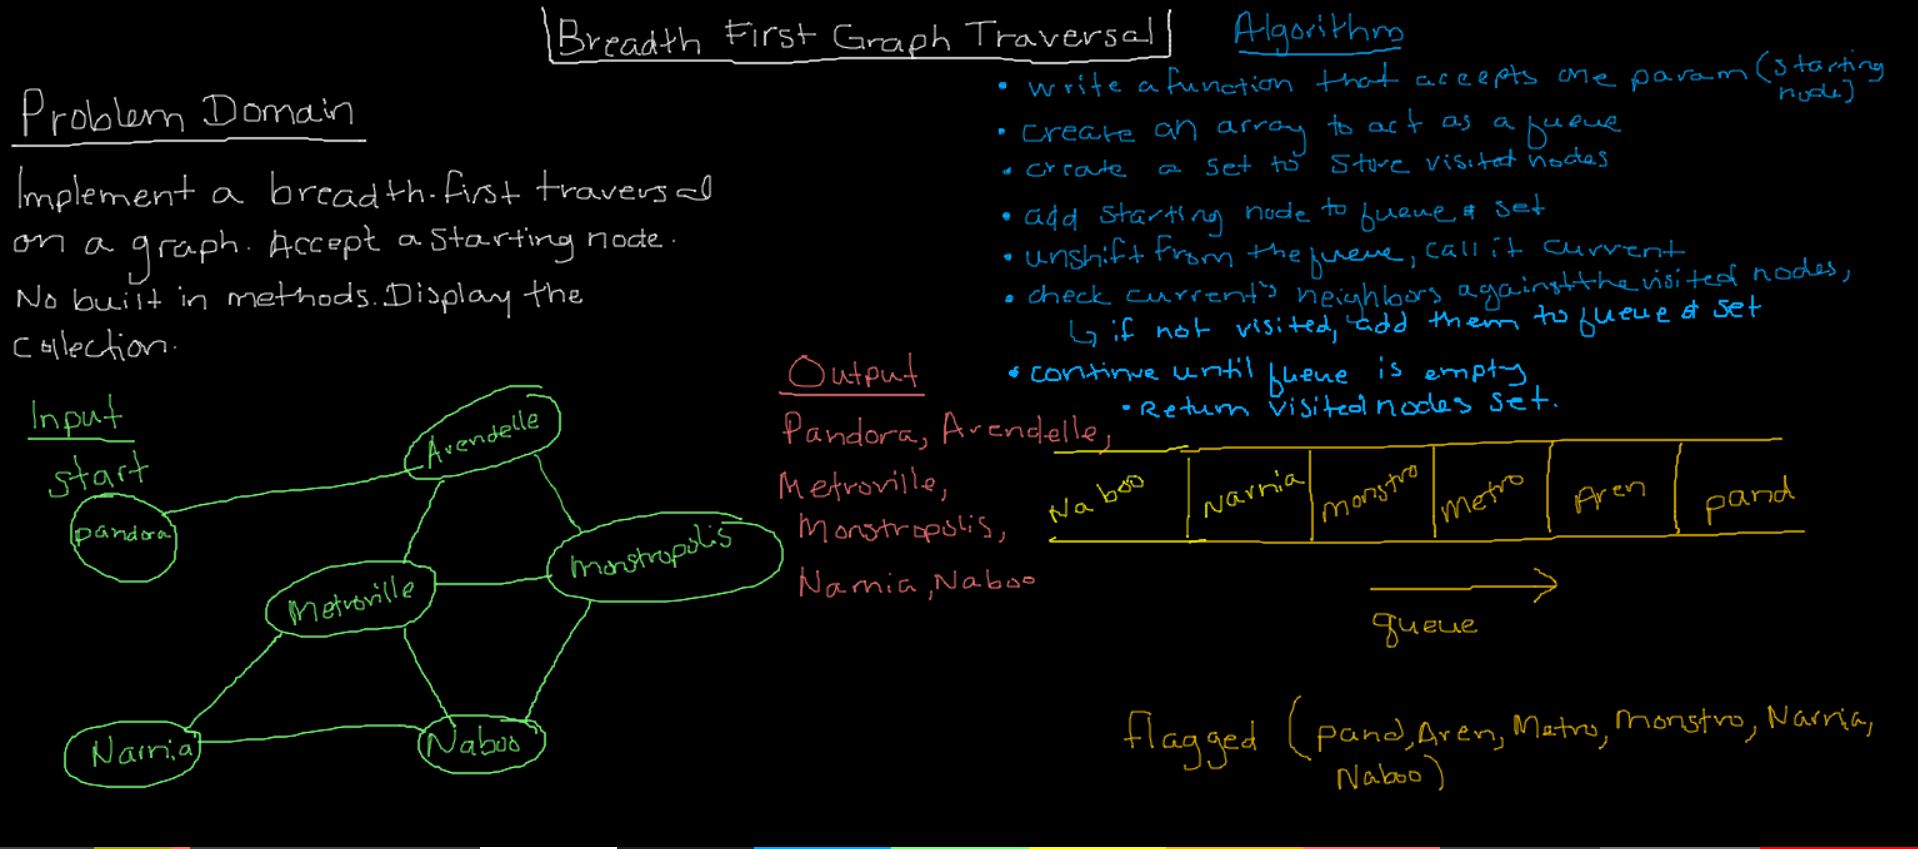 Breadth First Graph Traversal
Problem Domain
Implement a breadth-first traversal
on a graph. Accept a starting node.
No built in methods. Display the
collection.
Input
start
pandora
Arendelle
Metroville
Monstropolis
Narnia
Naboo
Output
Pandora, Arendelle,
Metroville,
Monstropolis,
Narnia, Naboo
Algorithm
• write a function that accepts one param (starting
node)
• create an array to act as a queue
• create a set to store visited nodes
• add starting node to queue & set
• unshift from the queue, call it current
• check current's neighbors against the visited nodes,
↳ if not visited, add them to queue & set
• continue until queue is empty
• Return visited nodes set.
Naboo Narnia Monstro Metro Aren pand
queue
flagged (pand, Aren, Metro, Monstro, Narnia,
Naboo)